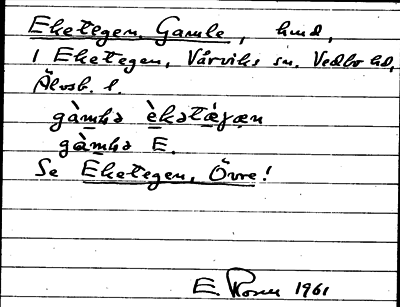 Eketegen, Gamle, hmd,
i Eketegen, Vårviks sn. Vedbo hd,
Älvsb. l.
gàmhə èkətæ̀gæn
gàmhə E.
Se Eketegen, Övre!
E. Rosén 1961